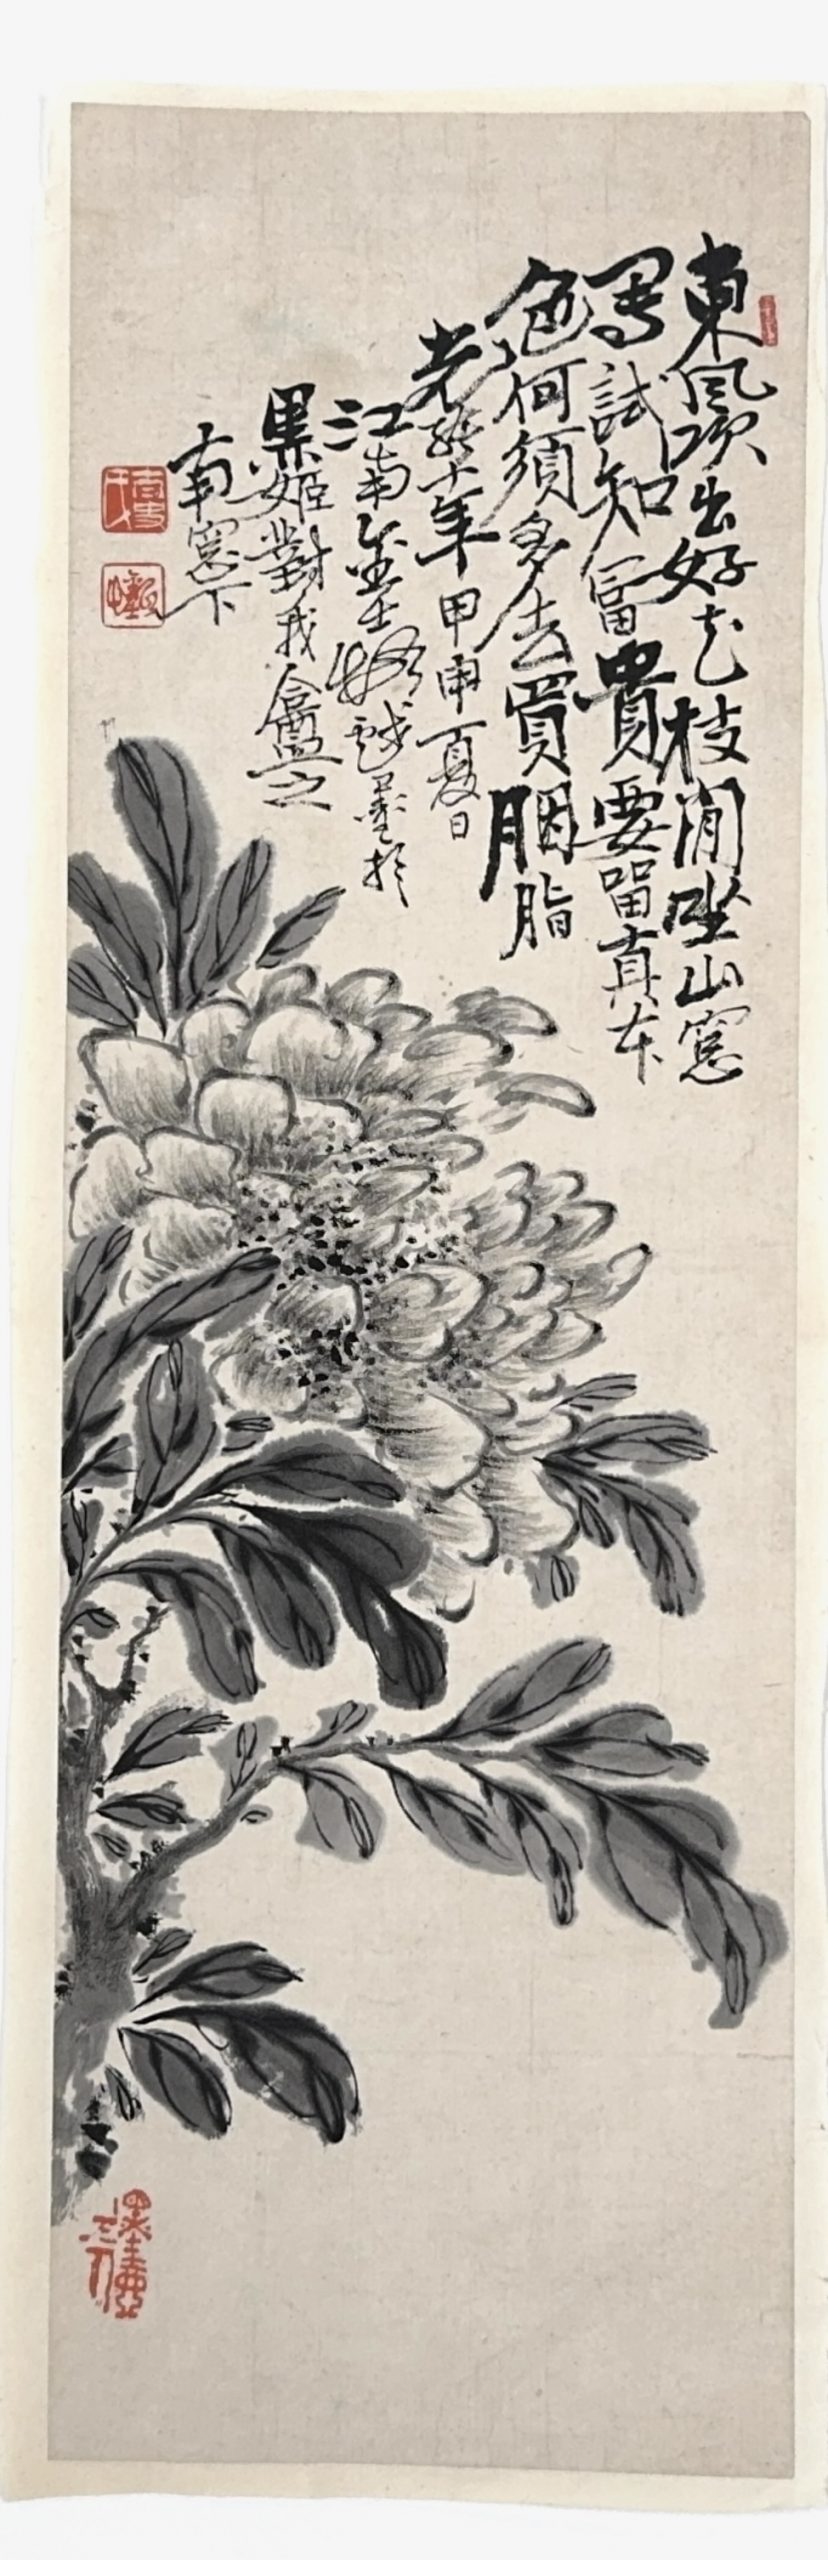 東風吹出好花枝閒坐山窓
寫試知富貴要留真本
色何須多去買胭脂
光緒十年甲申夏日
江南金 戲墨於
黑姬對我盦之
南窓下